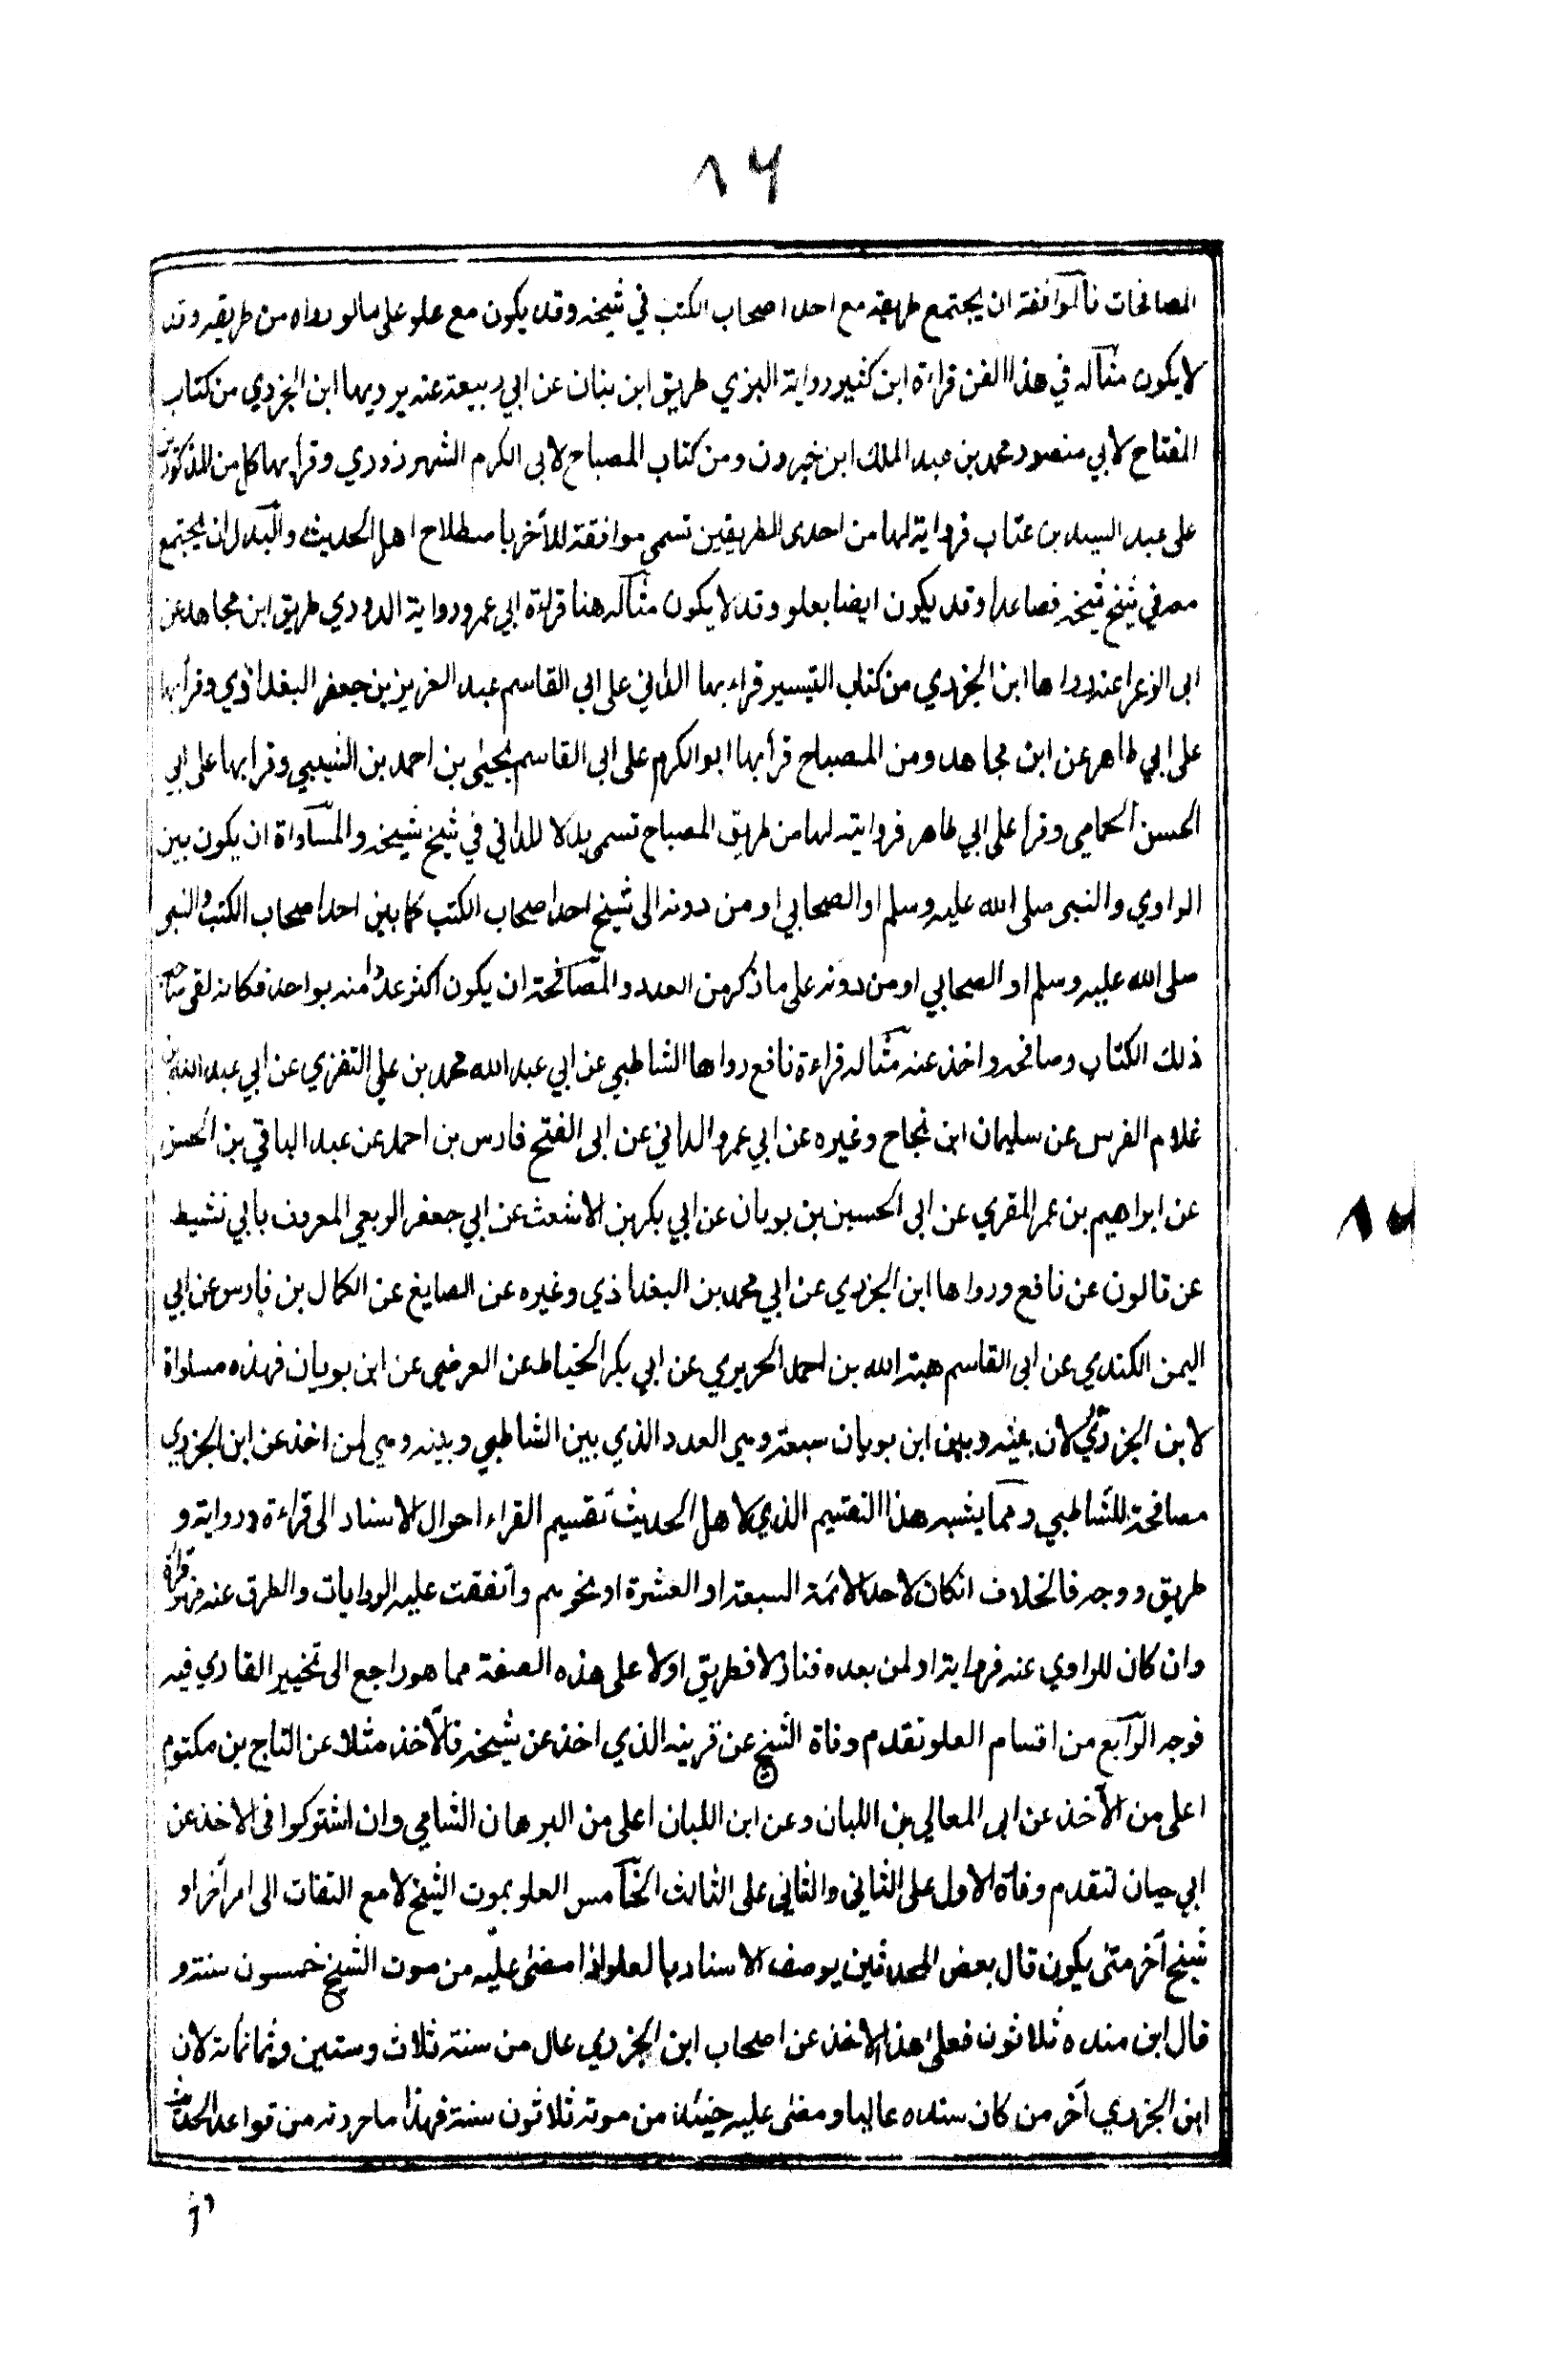 ٨٦
المصافحات فالموافقة ان يجتمع طريقه مع احد اصحاب الكتب في شيخه وقد يكون مع علو على مالو رواه من طريقه وقد
لا يكون مثاله في هذا الفن قراءة ابن كثير رواية البزي طريق ابن بنان عن ابي ربيعة عنه يرويها ابن الجزري من كتاب
المفتاح لابي منصور محمد بن عبد الملك ابن خيرون ومن كتاب المصباح لابي الكرم الشهرزوري وقرأ بها كل من المذكورين
على عبد السيد بن عتاب فروايته لها من احدى الطريقين تسمى موافقة للآخر باصطلاح اهل الحديث والبدل ان يجتمع
معه في شيخ شيخه فصاعدا وقد يكون ايضا بعلو وقد لا يكون مثاله هنا قراءة ابي عمرو رواية الدوري طريق ابن مجاهد عن
ابي الزعرا عنه رواها ابن الجزري من كتاب التيسير قراء بها الداني على ابي القاسم عبد العزيز بن جعفر البغداذي وقرأ بها
على ابي طاهر عن ابن مجاهد ومن المصباح قرأ بها ابو الكرم على ابي القاسم يحيى بن احمد بن السيبي وقرأ بها على ابي
الحسن الحمامي وقرا على ابي طاهر فروايته لها من طريق المصباح تسمى بدلا للداني في شيخ شيخه والمساواة ان يكون بين
الراوي والنبي صلى الله عليه وسلم او الصحابي او من دونه الى شيخ احد اصحاب الكتب كما بين احد اصحاب الكتب والنبي
صلى الله عليه وسلم او الصحابي او من دونه على ما ذكر من العدد والمصافحة ان يكون اكثر عددا منه بواحد فكانه لقي صاحب
ذلك الكتاب وصافحه واخذ عنه مثاله قراءة نافع رواها الشاطبي عن ابي عبد الله محمد بن علي النفزي عن ابي عبد الله بن
غلام الفرس عن سليمان ابن نجاح وغيره عن ابي عمرو الداني عن ابي الفتح فارس بن احمد عن عبد الباقي بن الحسن
عن ابراهيم بن عمر المقري عن ابي الحسين بن بويان عن ابي بكر بن الاشعث عن ابي جعفر الربعي المعروف بابي نشيط
عن قالون عن نافع ورواها ابن الجزري عن ابي محمد بن البغداذي وغيره عن الصايغ عن الكمال بن فارس عن ابي
اليمن الكندي عن ابي القاسم هبة الله بن احمد الحريري عن ابي بكر الخياط عن الفرضي عن ابن بويان فهذه مساواة
لابن الجزري لان بينه وبين ابن بويان سبعة وهي العدد الذي بين الشاطبي وبينه وهي لمن اخذ عن ابن الجزري
مصافحة للشاطبي ومما يشبه هذا التقسيم الذي لاهل الحديث تقسيم القراء احوال الاسناد الى قراءة ورواية و
طريق ووجه فالخلاف ان كان لاحد الائمة السبعة او العشرة او نحوهم واتفقت عليه الروايات والطرق عنه فهو قراءة
وان كان للراوي عنه فرواية او لمن بعده فنازلا فطريق اولا على هذه الصفة مما هو راجع الى تخيير القاري فيه
فوجه الرابع من اقسام العلو تقدم وفاة الشيخ عن قرينه الذي اخذ عن شيخه فالآخذ مثلا عن التاج بن مكتوم
اعلى من الآخذ عن ابي المعالي بن اللبان وعن ابن اللبان اعلى من البرهان الشامي وان اشتركوا في الاخذ عن
ابي حيان لتقدم وفاة الاول على الثاني والثاني على الثالث الخامس العلو بموت الشيخ لا مع التفات الى امر آخر او
شيخ آخر متى يكون قال بعض المحدثين يوصف الاسناد بالعلو اذا مضى عليه من موت الشيخ خمسون سنة و
قال ابن منده ثلاثون فعلى هذا الاخذ عن اصحاب ابن الجزري عال من سنة ثلاث وستين وثمانمائة لان
ابن الجزري آخر من كان سنده عاليا ومضى عليه حينئذ من موته ثلاثون سنة فهذا ما حررته من قواعد الحديث